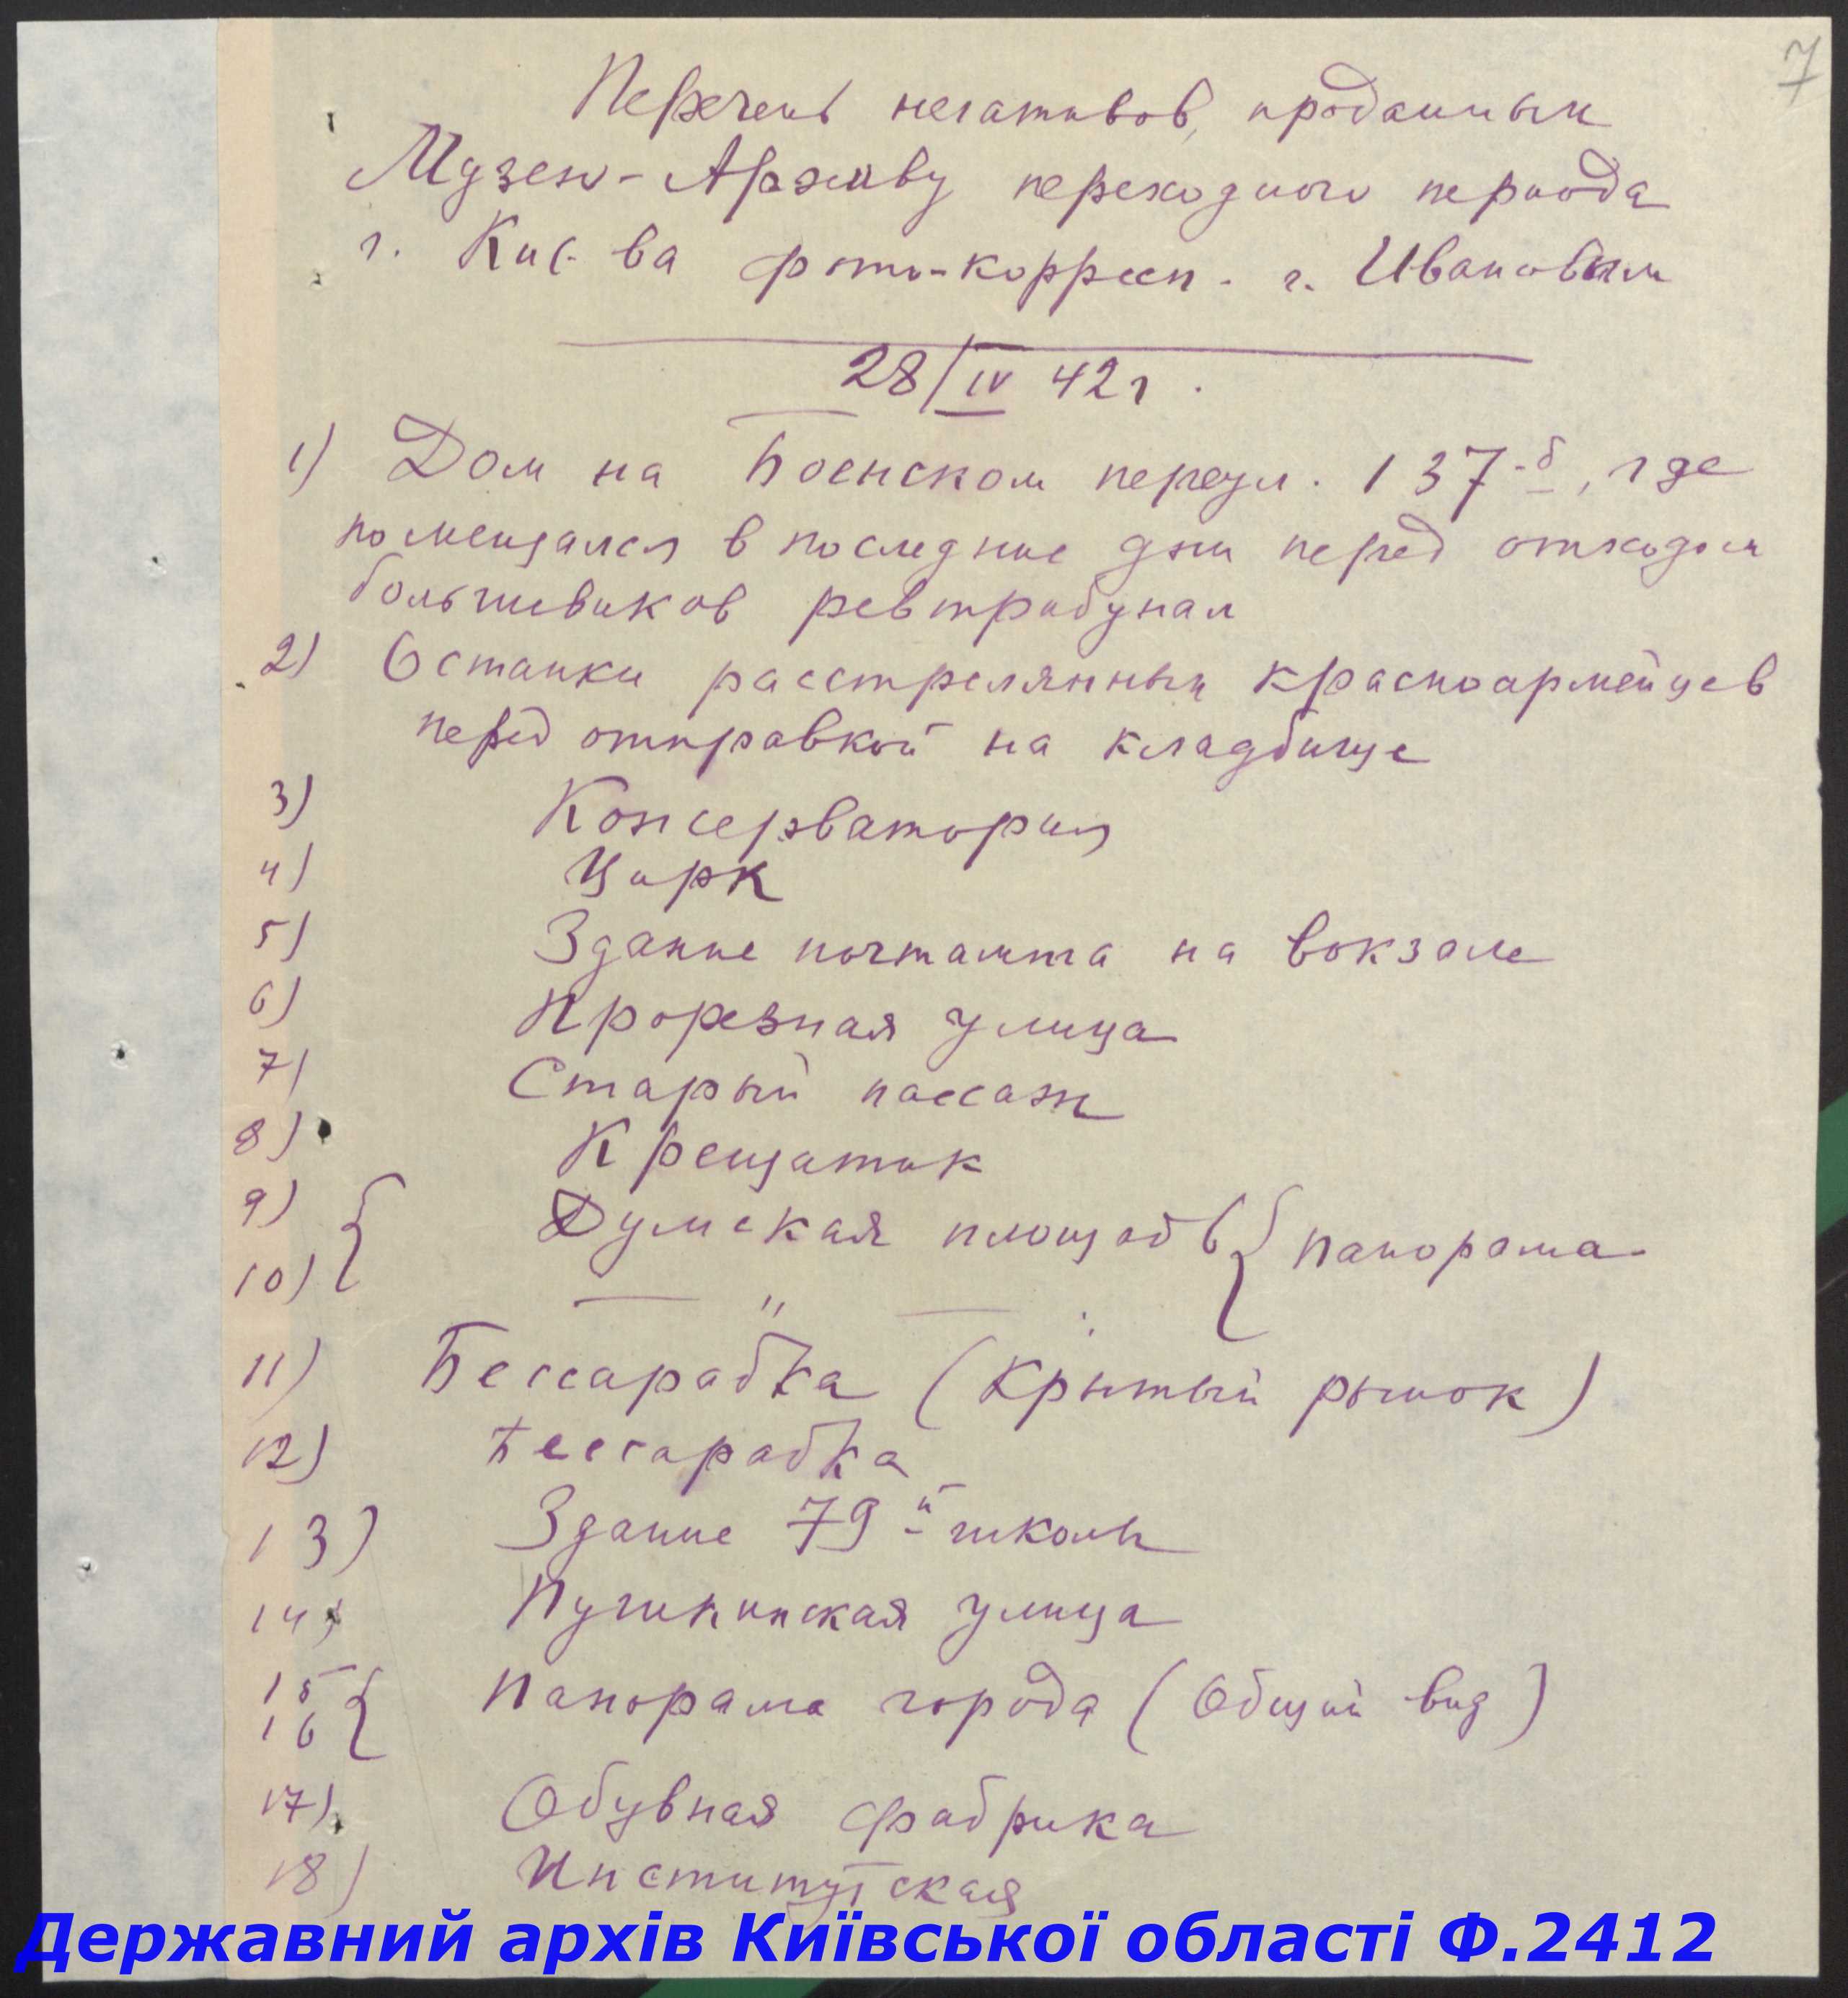 7
Перечень негативов, проданных
Музею-Архиву переходного периода
г. Киева фото-корресп. г. Ивановым
28/IV 42 г.
1) Дом на Боенском переул. 137-б, где
помещался в последние дни перед отходом
большевиков ревтрибунал
2) Останки расстрелянных красноармейцев
перед отправкой на кладбище
3) Консерватория
4) Цирк
5) Здание почтамта на вокзале
6) Прорезная улица
7) Старый пассаж
8) Крещатик
9) { Думская площадь } панорама
10) — " —
11) Бессарабка (Крытый рынок)
12) Бессарабка
13) Здание 79-й школы
14) Пушкинская улица
15 { Панорама города (Общий вид)
16
17) Обувная фабрика
18) Институтская
Державний архів Київської області Ф.2412